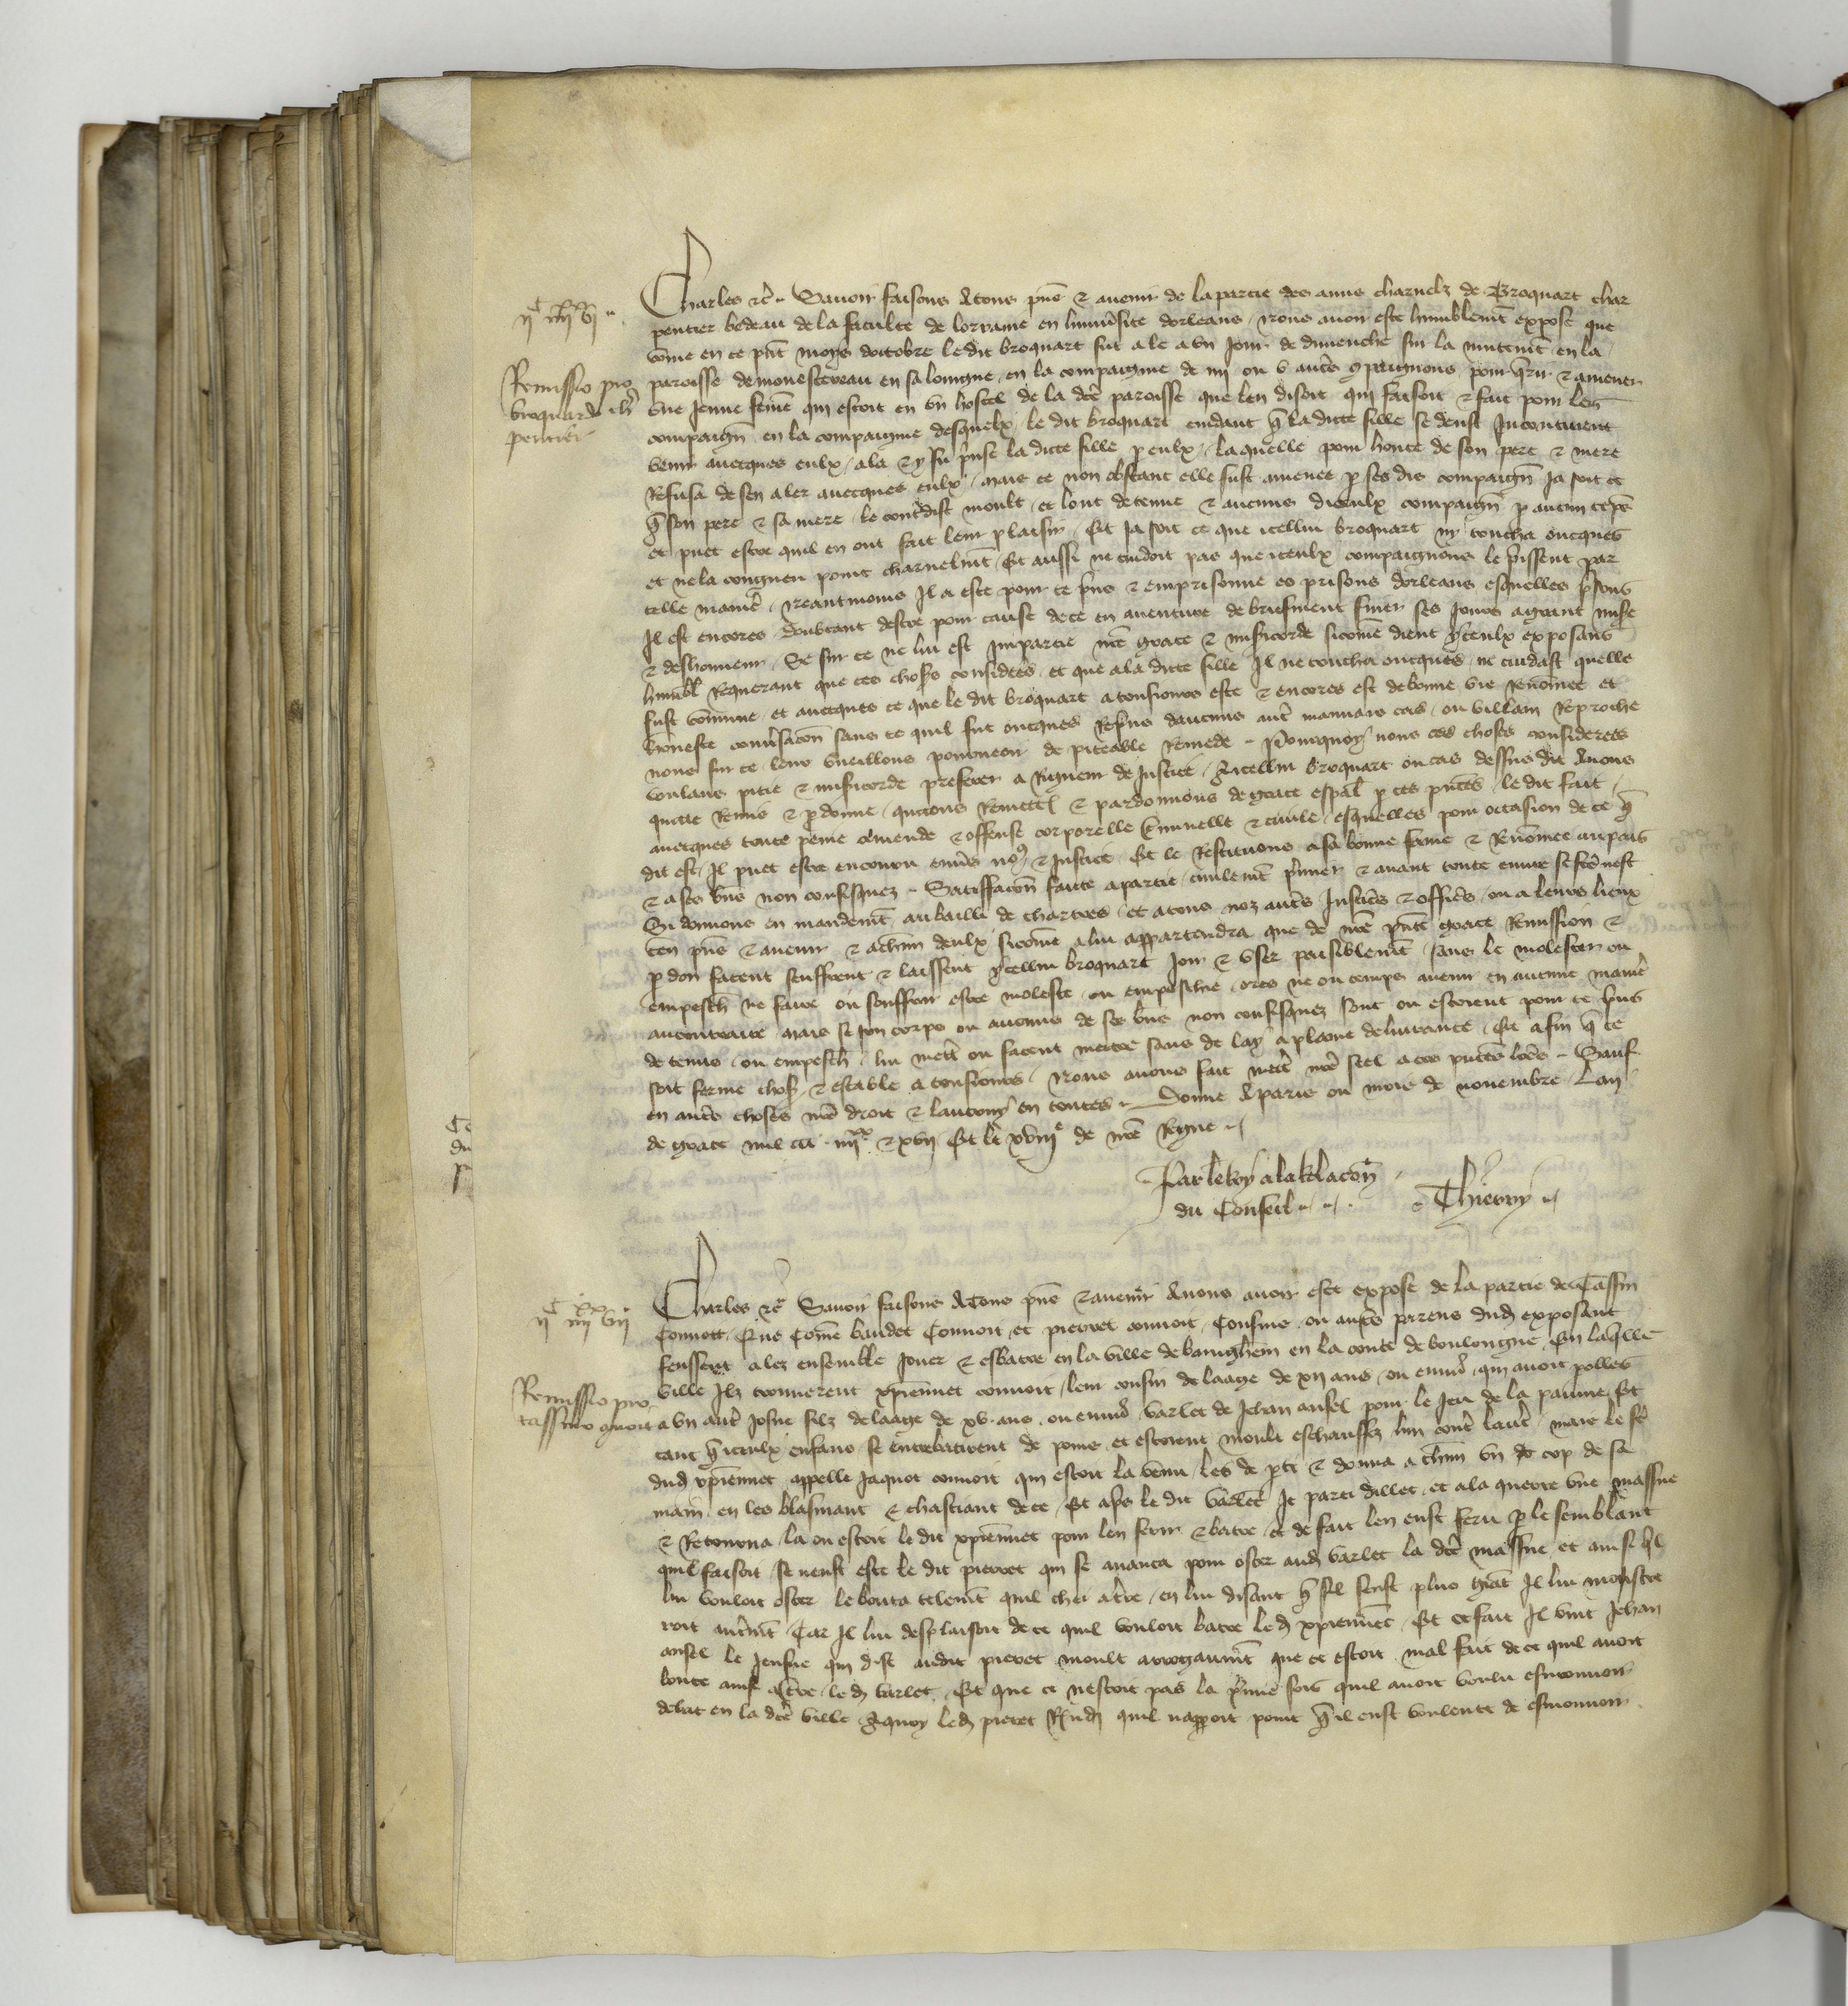 Charles etc. Savoir faisons A tous pns & avenir de la partie des amis charnelz de Broquart char
pentier bedeau de la faculte de lorraine en luniversite dorleans Nous avoir este humblemt expose que
come en ce pnt moys doctobre le dit broquart fut ale a un jour de dimenche sur la nuitemt en la
paroisse de monestereau en saloingne en la compaignie de iiij ou v autres compaignons pour querir & amener
Remissio pro
broquardo char
pentier
une jeune feme qui estoit en un hostel de la dcte paroisse que len disoit qui faisoit & fait pour les
compaign en la compaignie desquelx le dit broquart cuidant q la dicte fille se deust Incontinent
venir avecques eulx ala & y fu prinse la dicte fille p eulx laquelle pour honte de son pere & mere
Refusa de sen aler avecques eulx mais ce non obstant elle fust amenee p ses dis compaign Ja soit ce
q son pere & sa mere le contredist moult et lont detenue & aucuns diceulx compaign p aucun temps
et puet estre quil en ont fait leur plaisir Et Ja soit ce que icellui broquart ny toucha oncques
et ne la congneu point charnelmt Et aussi ne cuidoit pas que iceulx compaignons le prissent par
telle maniere Neantmoins Il a este pour ce prins & emprisonne es prisons dorleans esquelles prisons
Il est encores doubtant destre pour cause de ce en aventure de briefment finer ses jours a grant mise
& deshonneur Se sur ce ne lui est Impartie nre grace & misericorde sicome dient yceulx exposans
humbl Requerant que ces choses considerees et que a la dicte fille Il ne toucha oncques ne cuidast quelle
fust comune et avecques ce que le dit broquart a tousjours este & encores est de bonne vie Renomee et
honeste conversacon sans ce quil fut oncques Reprins daucuns autre mauvais cas ou villain Reproche
nous sur ce leur vueillons pourveoir de piteable Remede Pourquoy nous ces choses considerees
voulans pitie & misericorde preferer a Rigueur de Justice A icellui broquart ou cas dessus dit Avons
quicte Remis & pdonne quictons Remett & pardonnons de grace espal p ces pntes le dit fait
avecques toute peine amende & offense corporelle criminelle & civile esquelles pour occasion de ce q
dit est Il puet estre encouru envers nous & Justice Et le Restituons a sa bonne fame & Renomee au pais
& a ses biens non confisquez Satisfacon faicte a partie civilemt primier & avant toute euvre se fcte nest
Si donnons en mandemt au bailli de chartres et a tous noz autres Justic & offic ou a leurs lieux
ten pns & avenir & a chun deulx sicome a lui appartendra que de nre pnte grace Remission &
pdon facent seuffrent & laissent ycellui broquart Joir & user paisiblemt sans le molester ou
empesch ne faire ou souffrir estre moleste ou empeschie ores ne ou temps avenir en aucune maniere
au contraire mais se son corps ou aucuns de ses biens non confisquez sont ou estoient pour ce prins
detenus ou empesch lui mett ou facent mettre sans delay a plaine delivrance Et afin q ce
soit ferme chose & estable a tousjours Nous avons fait mettre nre seel a ces pntes lres Sauf
en autres choses nre droit & lautruy en toutes Donne A paris ou mois de novembre Lan
de grace mil ccc iiijxx & xvij Et le xviije de nre Regne
Par le Roy a la Relacon
du Conseil Thierry
Charles etc Savoir faisons A Tous pns & avenir A nous avoir este expose de la partie de Tassin
Connoit Que Come baudet Connoit et pierret connoit Cousins ou autres parens dud exposant
feussent alez ensemble Jouer & esbatre en la ville de bainghem en la conte de boulongne En laqlle
ville Ilz trouverent xpiennet connoit leur cousin de laage de xij ans ou environ qui avoit
Remissio pro
tassino connoit
a un autre josne filz de laage de xv ans ou environ varlet de Jehan ansel pour le Jeu de la paume Et
tant q iceulx enfans se entrebatirent de poins et estoient moult eschauffez lun contre lautre mais le frere
dud xpiennet appelle Jaquot connoit qui estoit la venu les departi & donna a chun un cop de sa
main en les blasmant & chastiant de ce Et aps le dit varlet se parti dillec et ala querre une massue
& Retourna la ou estoit le dit xpiennet pour len ferir & batre et de fait len eust feru p le semblant
quil faisoit se neust este le dit pierret qui se avanca pour oster aud varlet la dcte massue et ainsi ql
lui vouloit oster le bouta telemt quil chei a terre en lui disant q sil feust plus grant Il lui monstre
roit autremt Car Il lui desplaisoit de ce quil vouloit batre led xpiennet Et ce fait Il vint Jehan
ansel le Jeusne qui dist audit pierret moult arrogaumt que ce estoit mal fait de ce quil avoit
boute ainsi a terre led varlet Et que ce nestoit pas la prime fois quil avoit voulu esmouvoir
debat en la dcte ville A quoy led pierret Rndi quil napport point q il eust voulente de esmouvoir